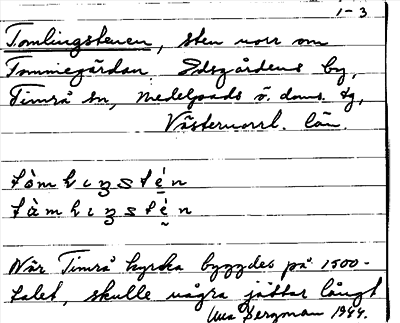 1-3
Tomlingstenen, sten norr om
Tommegärdan Edsgårdens by,
Timrå sn, Medelpads ö. doms. tg,
Västernorrl. län.
När Timrå kyrka byggdes på 1500-
talet, skulle några jättar långt
Bergman 1944.